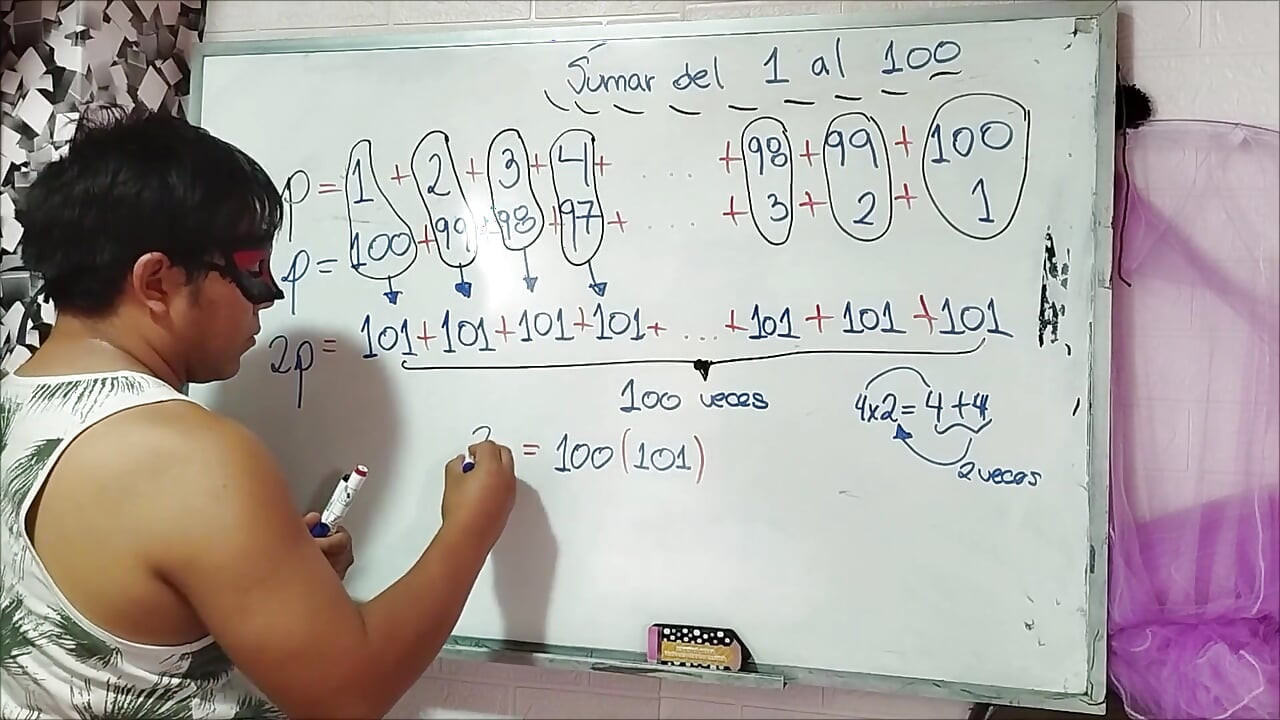 Sumar del 1 al 100
p = 1 + 2 + 3 + 4 + .... + 98 + 99 + 100
p = 100 + 99 + 98 + 97 + .... + 3 + 2 + 1
2p = 101 + 101 + 101 + 101 + ... + 101 + 101 + 101
100 veces
4x2 = 4 + 4
2 veces
2 = 100(101)